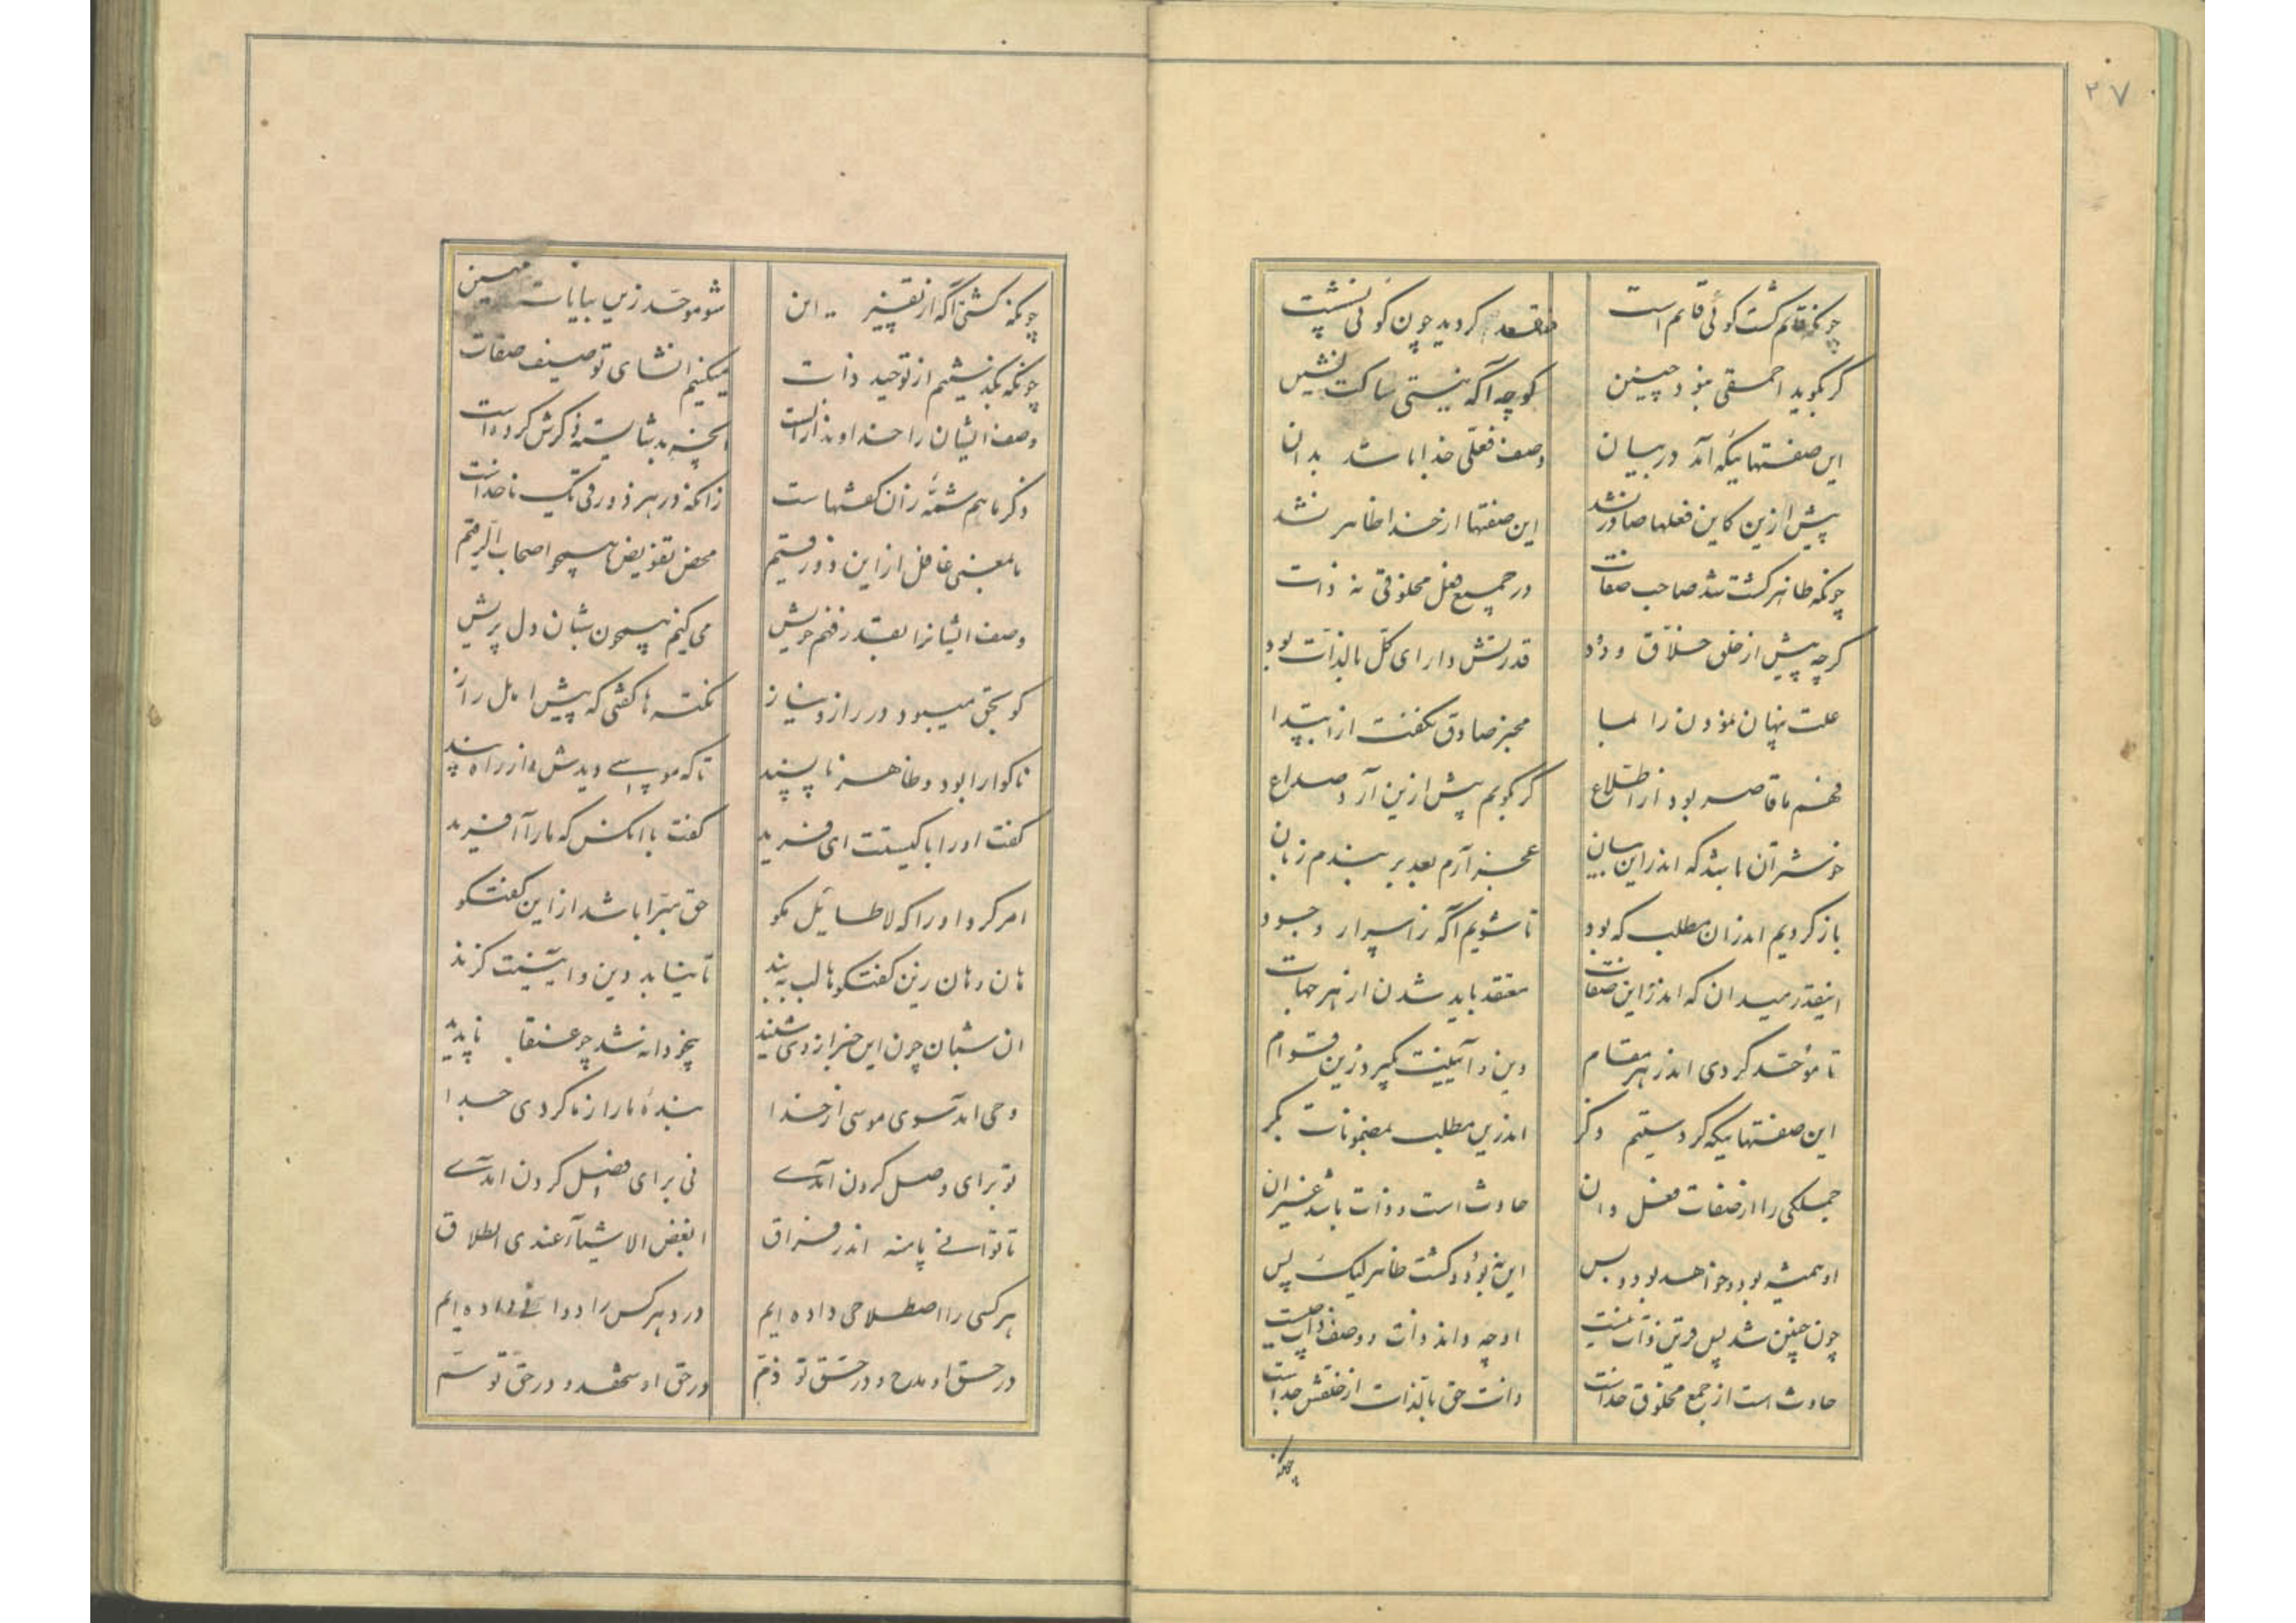 ۲۷
چونکه قائم گشت گوئی قائم است
منعقد گردید چون گوئی نشست
گر بگوید احمقی بنود چنین
گوچه آگه نیستی ساکت نشین
این صفتهائیکه آمد در بیان
وصف فعلی خدا باشد بدان
پیش ازین کاین فعلها صادر نشد
این صفتها از خدا ظاهر نشد
چونکه ظاهر گشت شد صاحب صفات
در جمیع فعل مخلوقی نه ذات
گرچه پیش از خلق خلاق ودود
قدرتش دارای کل بالذات بود
علت پنهان نمودن را بما
مخبر صادق نگفت از ابتدا
فهم ما قاصر بود از اطلاع
گر بگویم پیش ازین آرد صداع
خوشتر آن باشد که اندر این بیان
عجز آرم بعد بر بندم زبان
باز گردیم اندران مطلب که بود
تا شویم آگه ز اسرار وجود
اینقدر میدان که اندر این صفات
معتقد باید شدن از هر جهات
تا موحد گردی اندر هر مقام
دین و آیینت بگیرد زین قوام
این صفتهائیکه کردستیم ذکر
اندرین مطلب بمضمونات بکر
جملگی را از صفات فعل دان
حادث است و ذات باشد غیر ان
او همیشه بود و خواهد بود و بس
این نبود و گشت ظاهر لیک پس
چون چنین شد پس قرین ذات نیست
او چه داند ذات و وصف ذات چیست
حادث است از جمع مخلوق خداست
ذات حق بالذات از خلقش جداست
چونکه
چونکه گشتی آگه از تقییر این
شو موحد زین بیانات مبین
چونکه بگذشتیم از توحید ذات
میکنیم انشای توصیف صفات
وصف ایشان را خداوند آراست
آنچه بد شایسته ذکرش کرده است
ذکر ما هم شمّه زان گفتهاست
زانکه در هر ذورقی یک ناخداست
ما بمعنی غافل از این ذورقیم
محض تفویض همچو اصحاب الرقیم
وصف ایشانرا بقدر فهم خویش
می کنیم همچون شبان دل پریش
کو بحق میبود در راز و نیاز
نکته ها گفتی که پیش اهل راز
ناگوارا بود و ظاهر ناپسند
تا که موسی دیدش از راه پند
گفت او را با کیستت ای فرید
گفت با انکس که ما را آفرید
امر کرد او را که لا طائل مگو
حق مبرا باشد از این گفتگو
هان و هان زین گفتگوها لب ببند
تا نیابد دین و ایینت گزند
ان شبان چون این خبر از وی شنید
بیخودانه شد چو عنقا ناپدید
وحی امد سوی موسی از خدا
بندهٔ ما را ز ما کردی جدا
تو برای وصل کردن آمدے
نی برای فصل کردن امدے
تا توانے پا منه اندر فراق
ابغض الاشیآء عندی الطلاق
هر کسی را اصطلاحی داده ایم
درد هر کس را دوائے داده ایم
در حق او مدح و در حق تو ذم
در حق او شهد و در حق تو سم